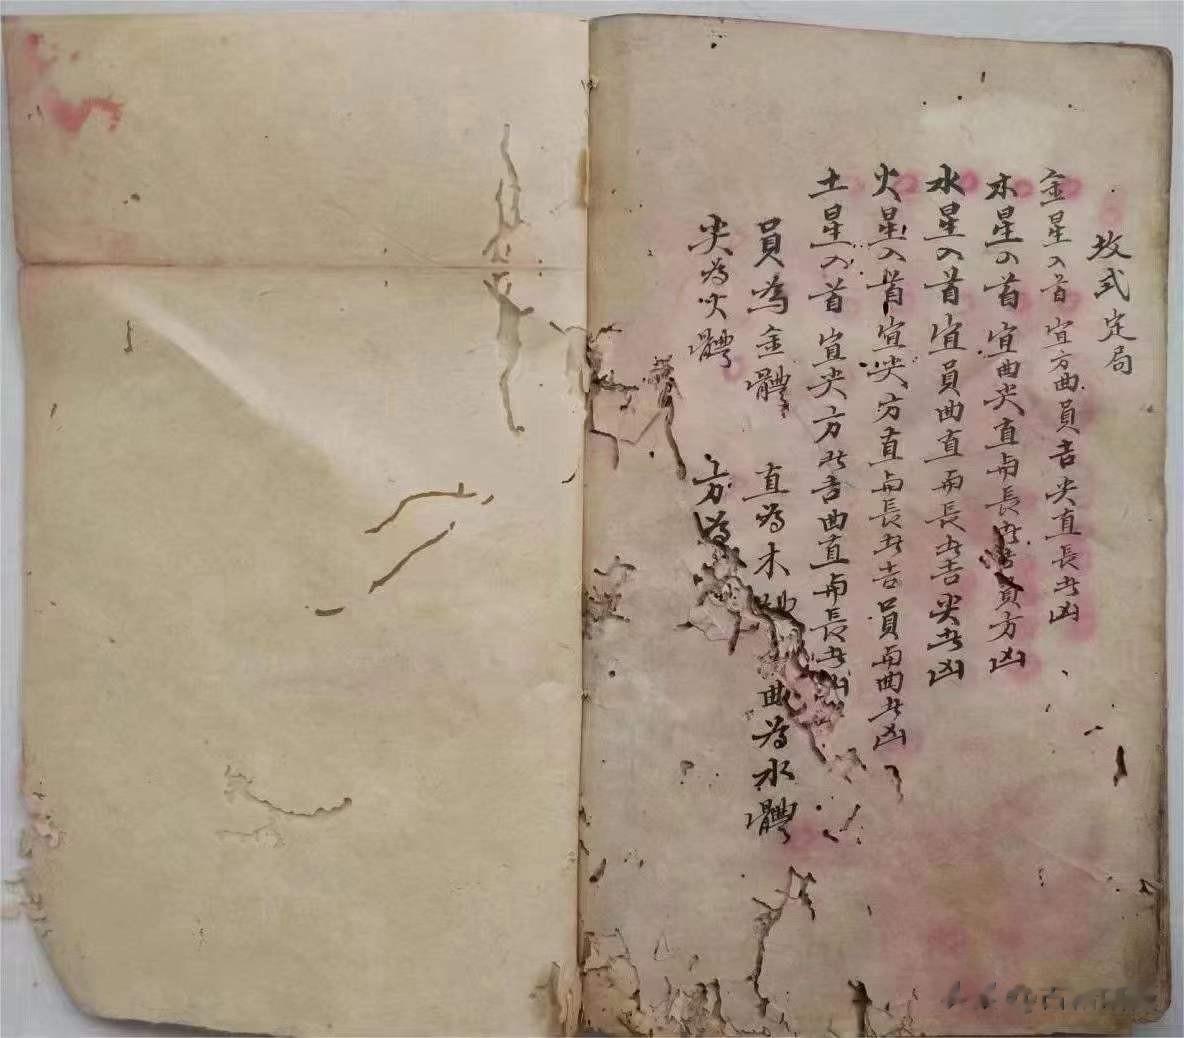 坟式定局
金星入首宜方曲員吉尖直長者凶
木星入首宜曲尖直與長者吉員方凶
水星入首宜員曲直與長者吉尖者凶
火星入首宜尖方直與長者吉員與曲者凶
土星入首宜尖方者吉曲直與長者凶
員為金體 直為木 曲為水體
尖為火體 方為